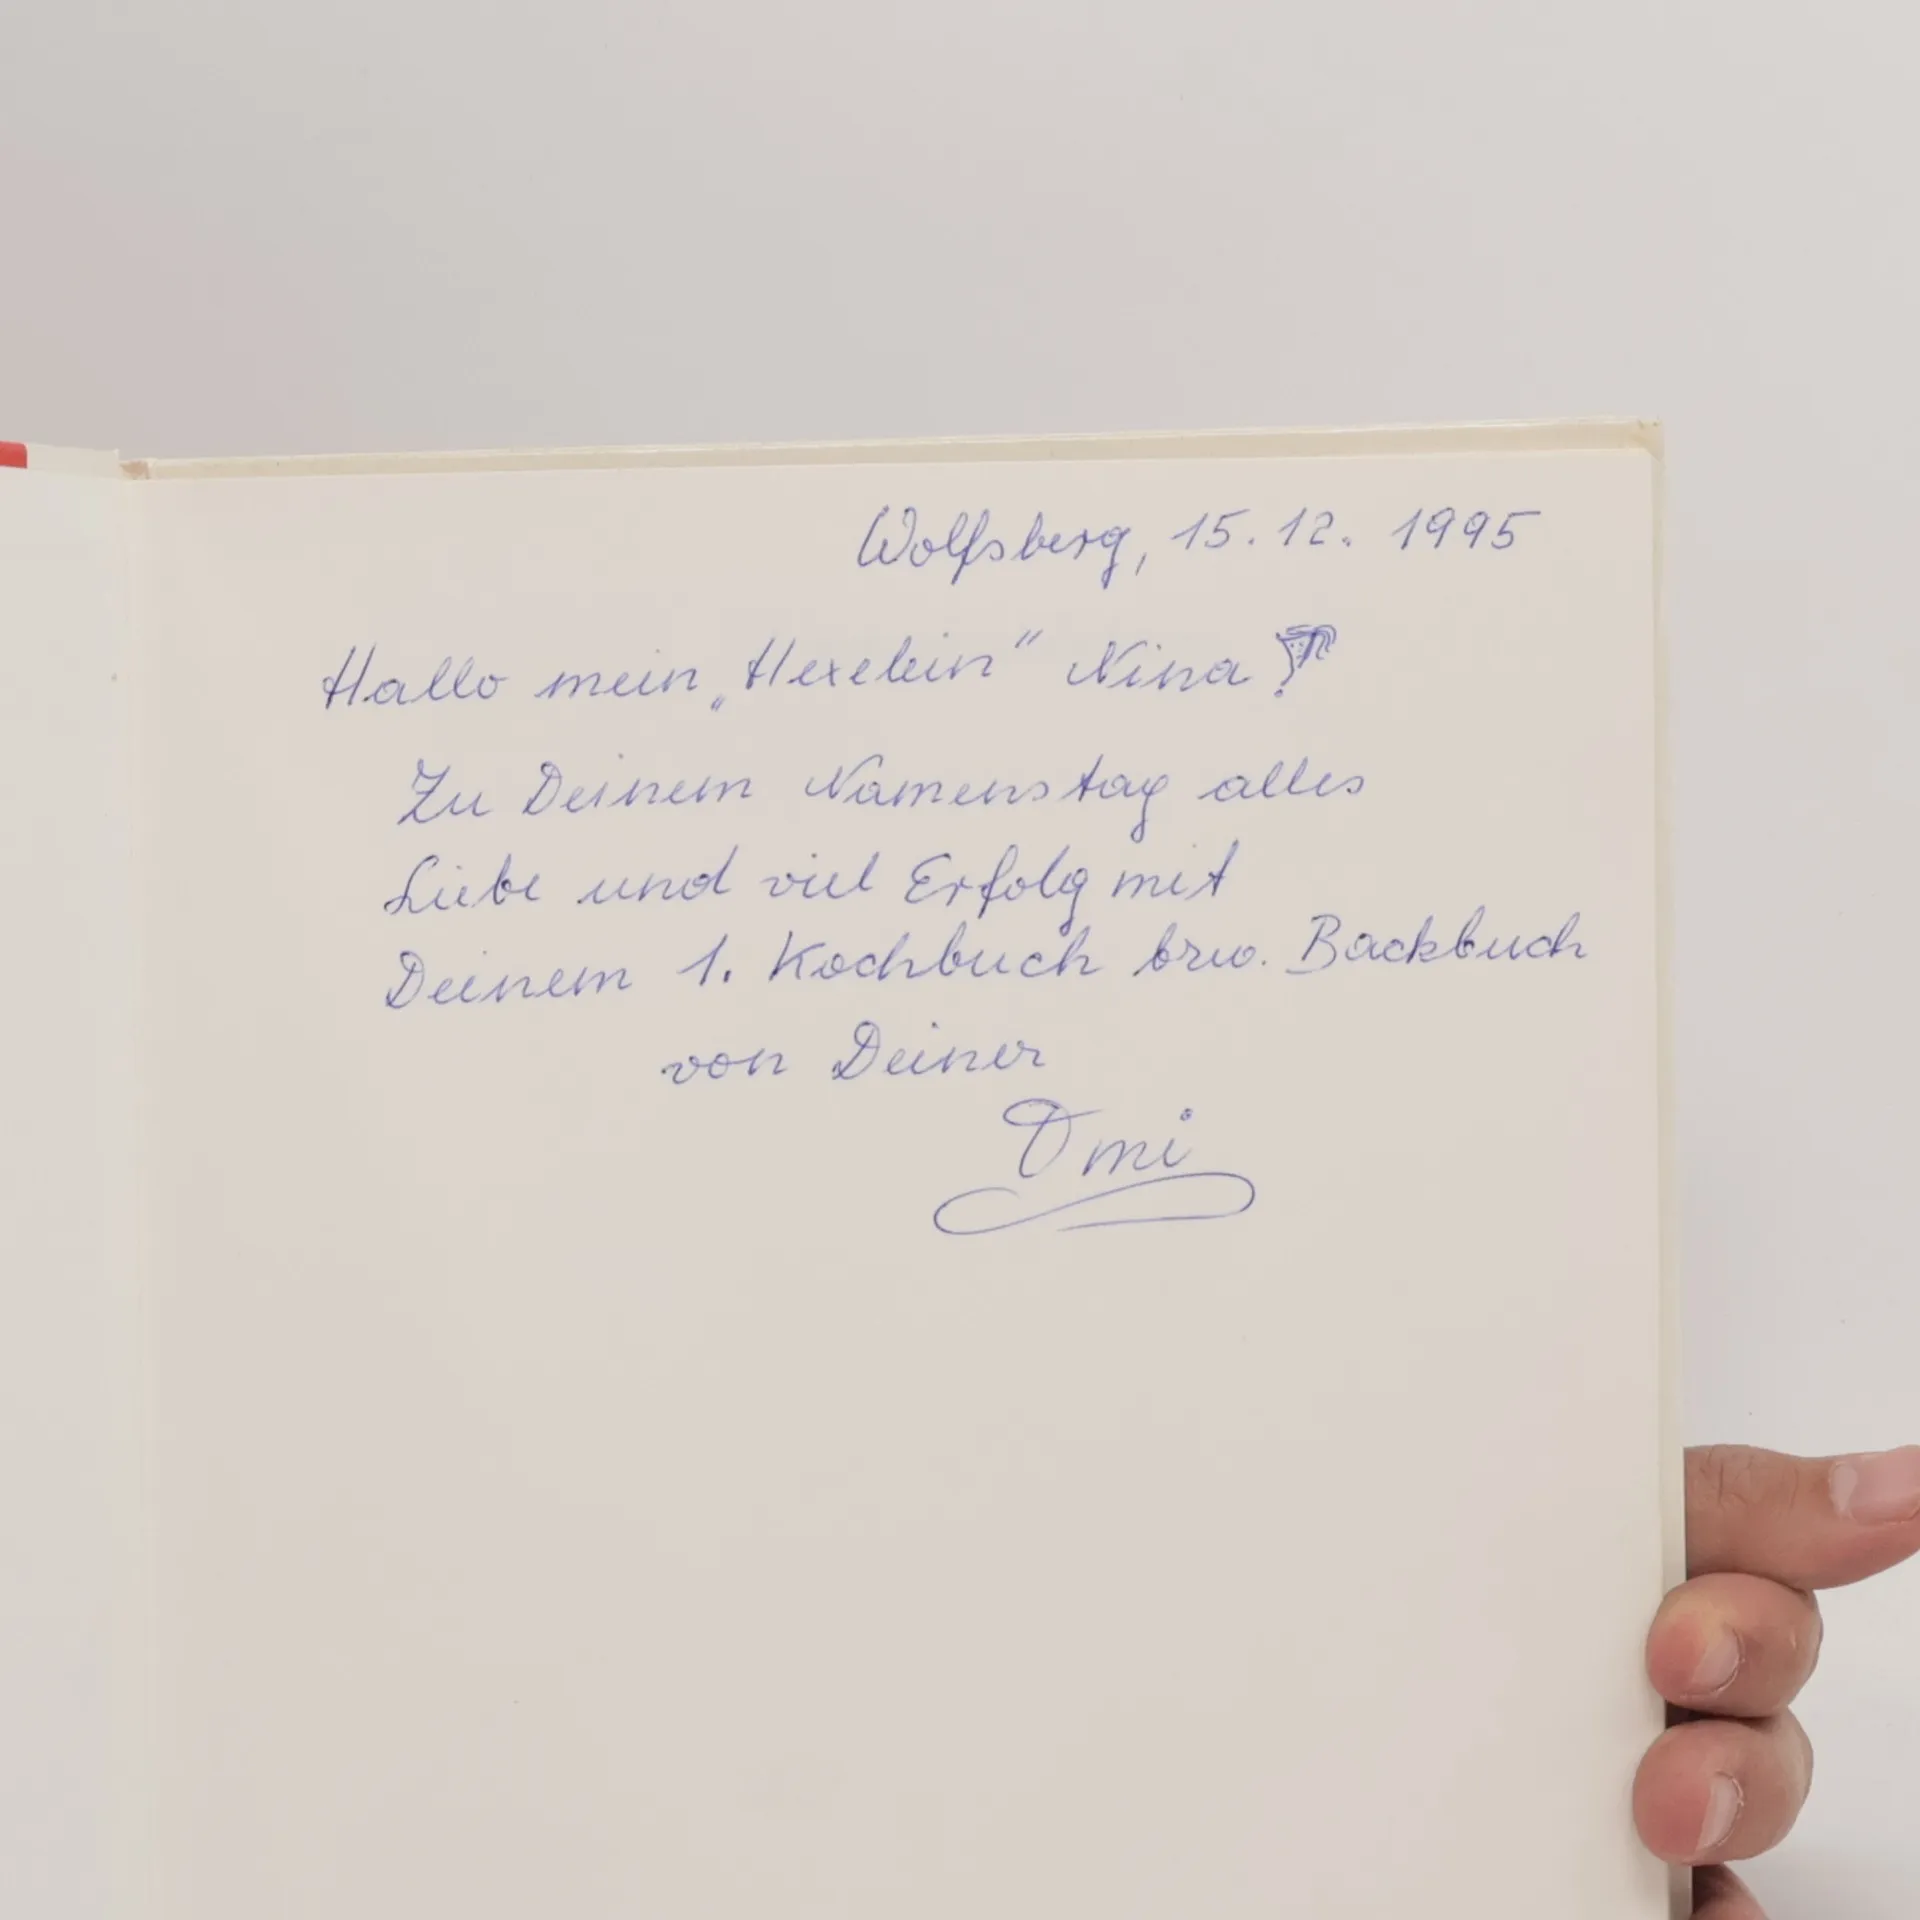 Wolfsberg, 15.12.1995
Hallo mein „Hexelein" Nina!
Zu Deinem Namenstag alles
Liebe und viel Erfolg mit
Deinem 1. Kochbuch bzw. Backbuch
von Deiner
Omi